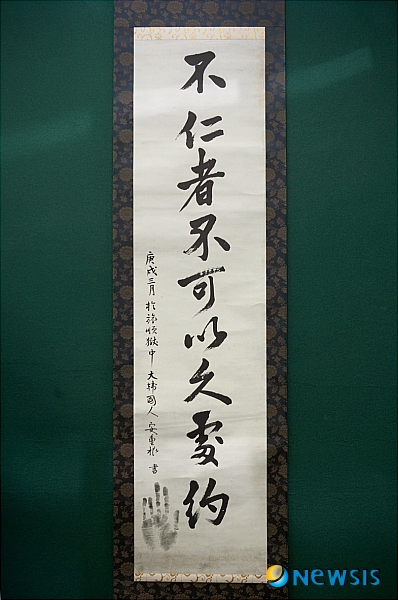 不仁者不可以久處約
庚戌三月 於旅順獄中 大韓國人 安重根 書
newsis